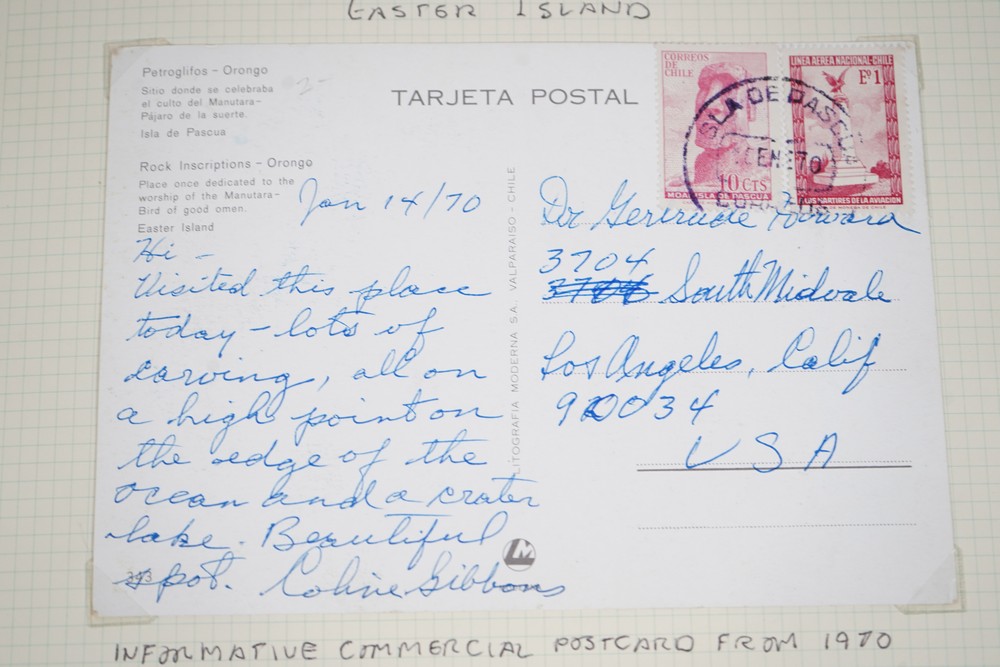 EASTER ISLAND
Petroglifos - Orongo
Sitio donde se celebraba
el culto del Manutara-
Pájaro de la suerte.
Isla de Pascua
Rock Inscriptions - Orongo
Place once dedicated to the
worship of the Manutara-
Bird of good omen.
Easter Island
TARJETA POSTAL
CORREOS
DE
CHILE
10 CTS
MOAI-ISLA DE PASCUA
LINEA AEREA NACIONAL-CHILE
Eº1
LOS MARTIRES DE LA AVIACION
CASA DE MONEDA DE CHILE
ISLA DE PASCUA
ENE 70
Jan 14/70
Hi -
Visited this place
today - lots of
carving, all on
a high point on
the edge of the
ocean and a crater
lake. Beautiful
spot. Coline Gibbons
343
LITOGRAFIA MODERNA S.A. VALPARAISO - CHILE
LM
Dr Gertrude
3704
South Midvale
Los Angeles, Calif
90034
USA
INFORMATIVE COMMERCIAL POSTCARD FROM 1970